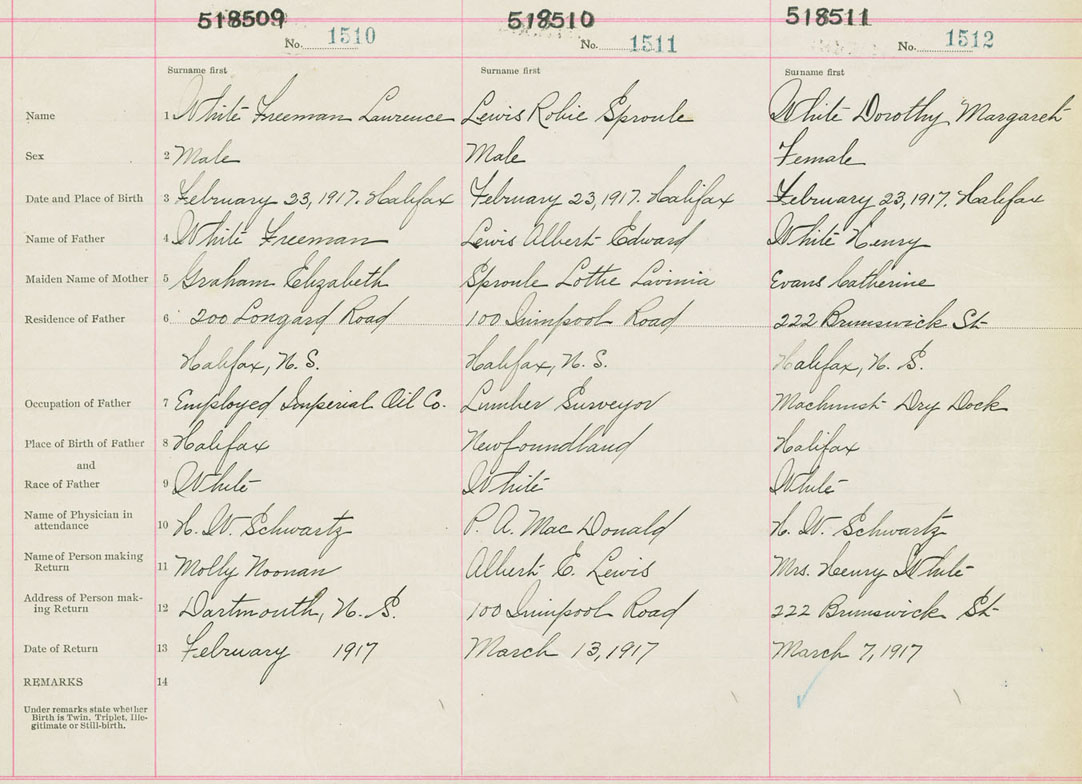 518509 518510 518511
No. 1510 No. 1511 No. 1512
Surname first Surname first Surname first
Name 1 White Freeman Laurence Lewis Robie Sproule White Dorothy Margaret
Sex 2 Male Male Female
Date and Place of Birth 3 February 23, 1917. Halifax February 23, 1917. Halifax February 23, 1917. Halifax
Name of Father 4 White Freeman Lewis Albert Edward White Henry
Maiden Name of Mother 5 Graham Elizabeth Sproule Lottie Lavinia Evans Catherine
Residence of Father 6 200 Longard Road 100 Quinpool Road 222 Brunswick St
Halifax, N. S. Halifax, N. S. Halifax, N. S.
Occupation of Father 7 Employed Imperial Oil Co. Lumber Surveyor Machinist Dry Dock
Place of Birth of Father 8 Halifax Newfoundland Halifax
and
Race of Father 9 White White White
Name of Physician in
attendance 10 H. W. Schwartz P. A. Mac Donald H. W. Schwartz
Name of Person making
Return 11 Molly Noonan Albert E. Lewis Mrs. Henry White
Address of Person mak-
ing Return 12 Dartmouth, N. S. 100 Quinpool Road 222 Brunswick St
Date of Return 13 February 1917 March 13, 1917 March 7, 1917
REMARKS 14
Under remarks state whether
Birth is Twin, Triplet, Ille-
gitimate or Still-birth.